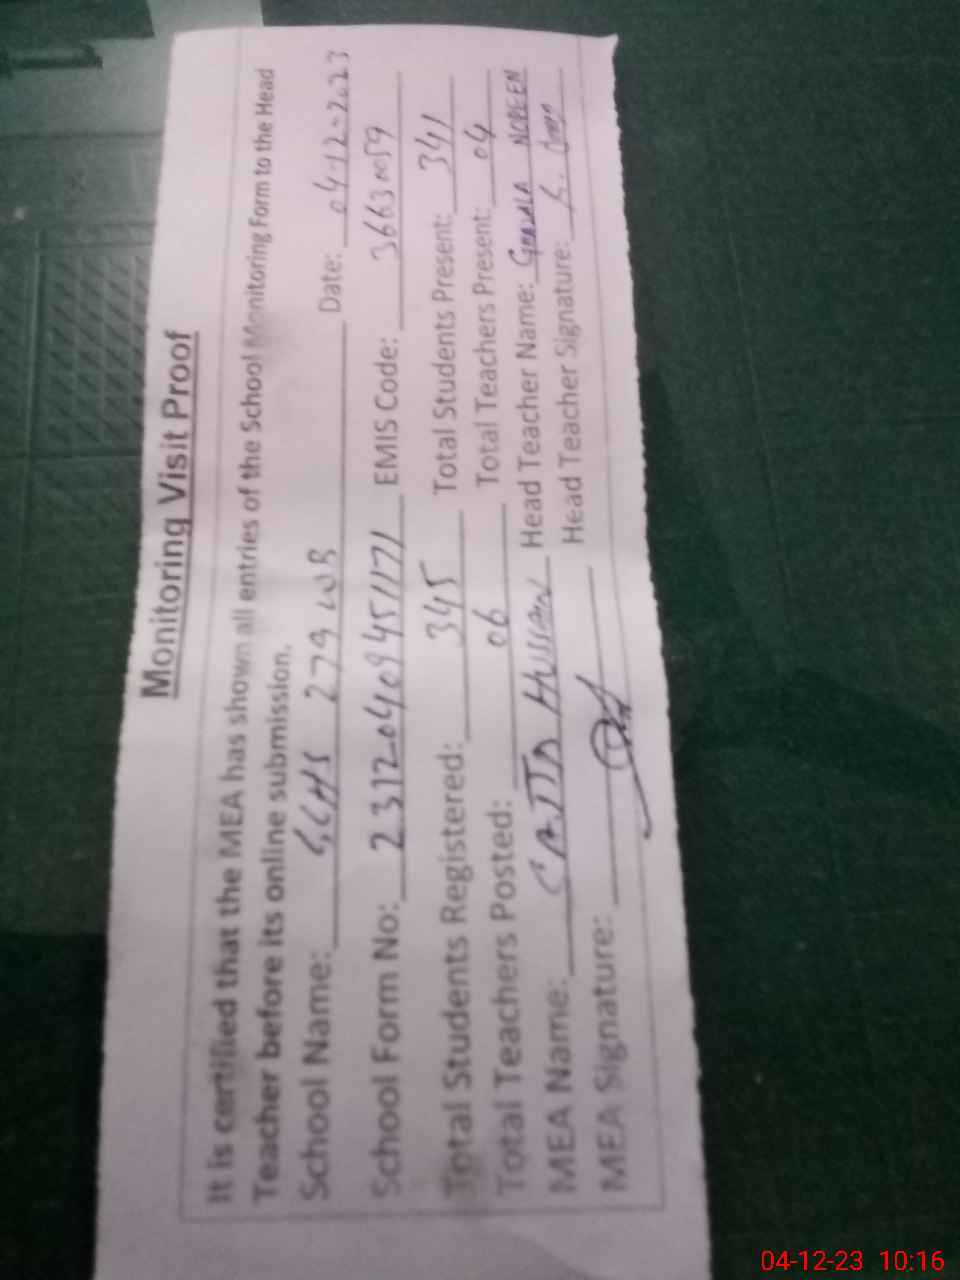 Monitoring Visit Proof
It is certified that the MEA has shown all entries of the School Monitoring Form to the Head
Teacher before its online submission.
School Name: GGHS 279 WB Date: 04-12-2023
School Form No: 23120409451171 EMIS Code: 36630059
Total Students Registered: 345 Total Students Present: 341
Total Teachers Posted: 06 Total Teachers Present: 04
MEA Name: SAJJAD HUSSAIN Head Teacher Name: GHAZALA NOREEN
MEA Signature: Head Teacher Signature:
04-12-23 10:16